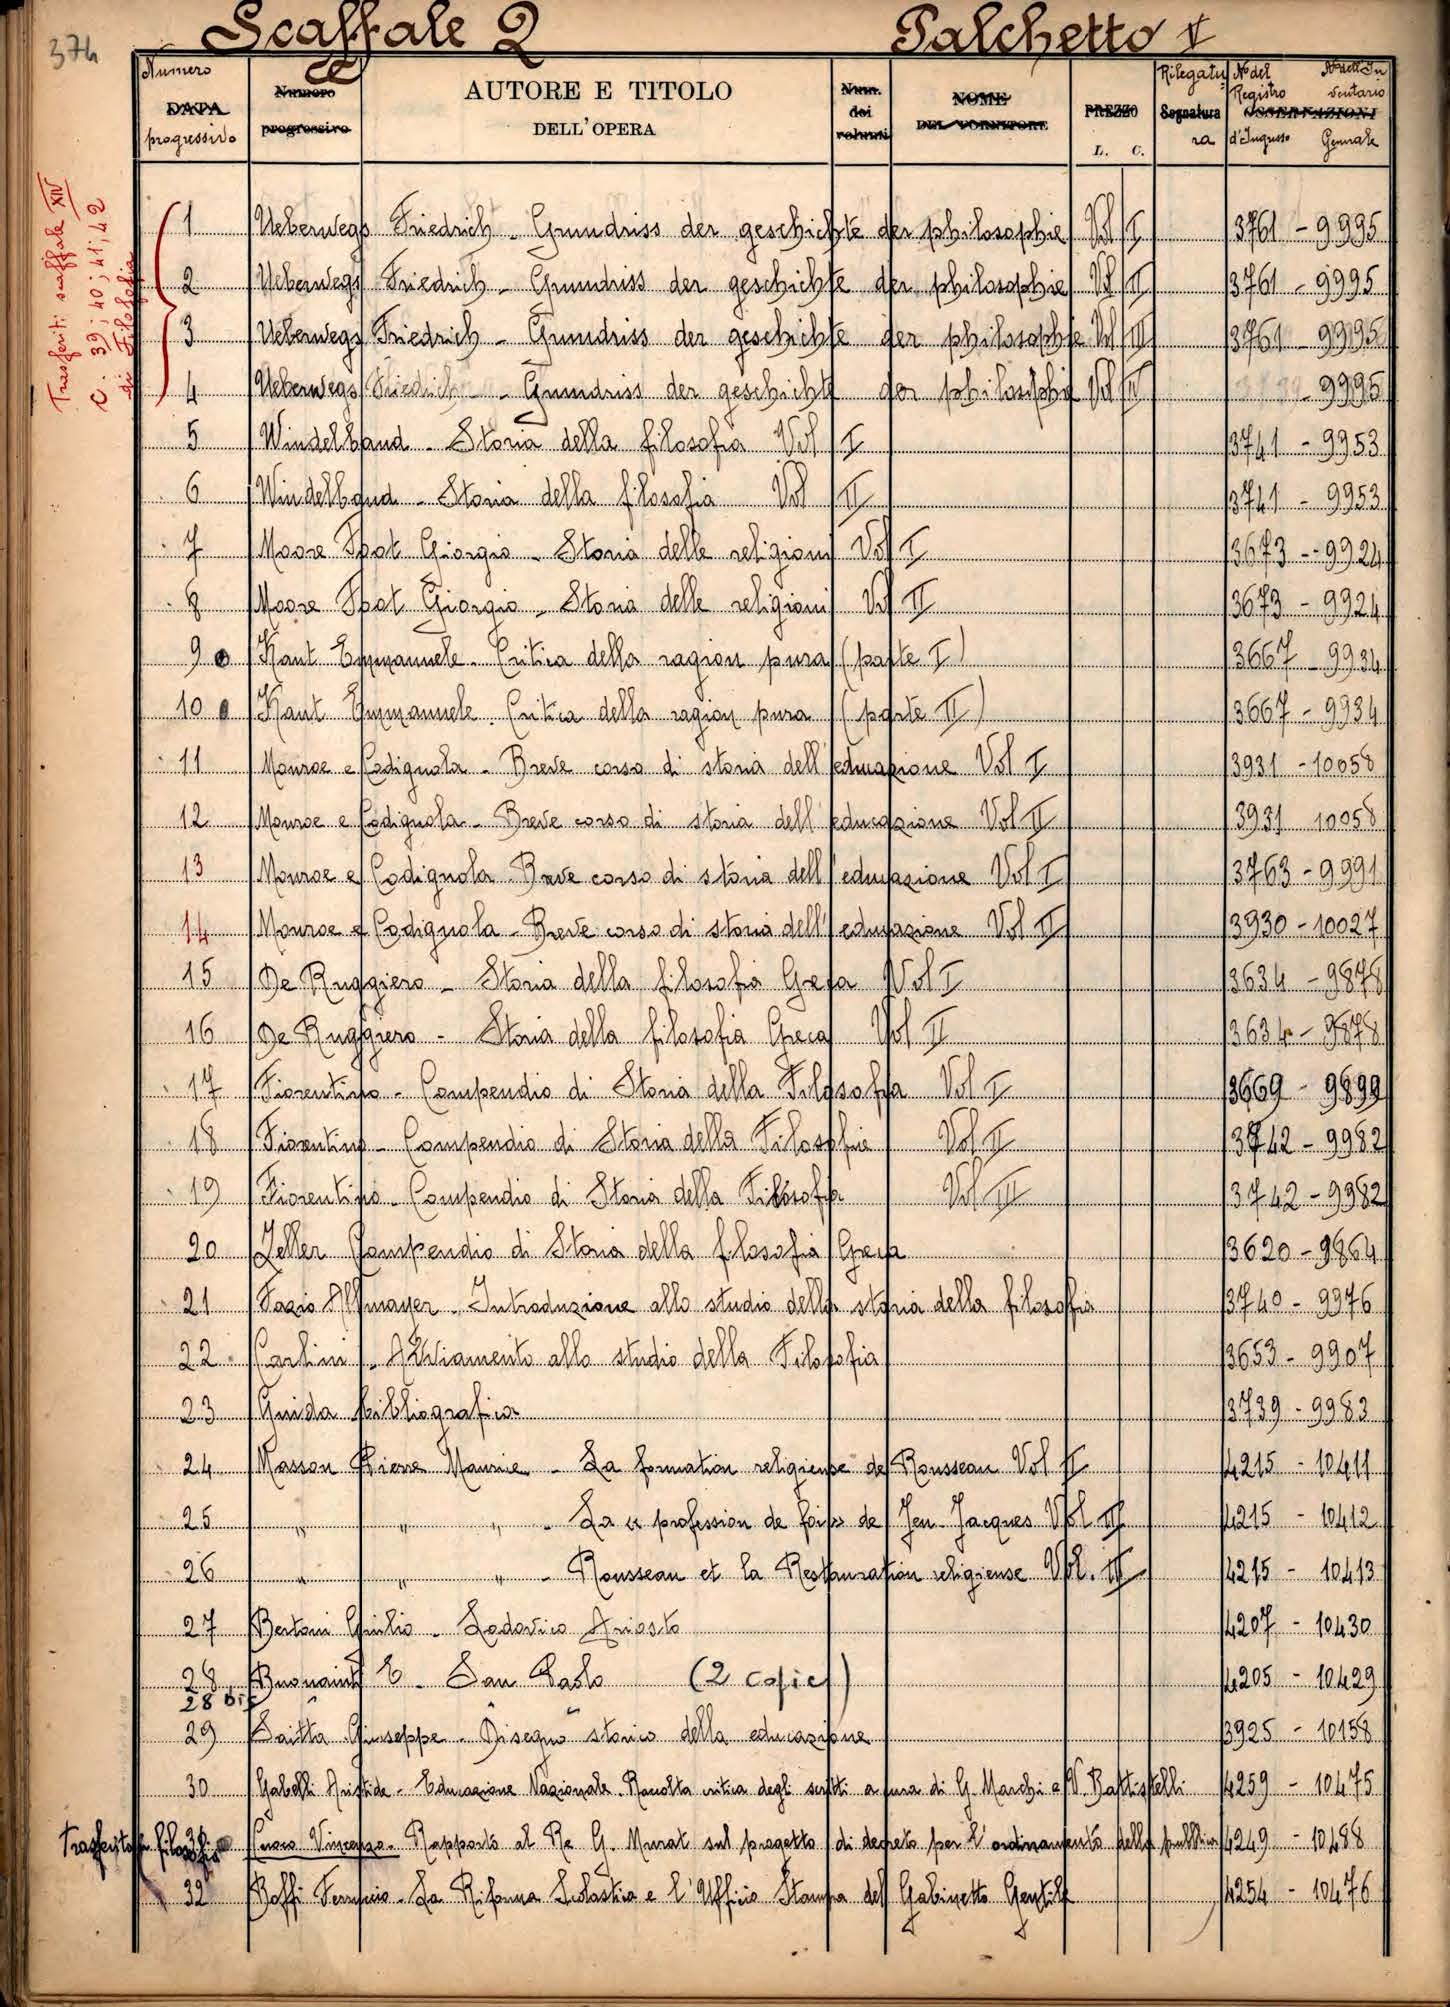 374
Scaffale 2 Palchetto V
Numero DATA progressivo
Numero progressivo
AUTORE E TITOLO DELL'OPERA
Num. dei volumi
NOME DEL FORNITORE
PREZZO L. C.
Rilegatu Segnatura ra
N° del Registro d'Ingresso
N° dell'Inventario OSSERVAZIONI Generale
Trasferiti scaffale XIV
C. 39; 40; 41; 42
di Filosofia
1 Ueberwegs Friedrich - Grundriss der geschichte der philosophie Vol I 3761 - 9995
2 Ueberwegs Friedrich - Grundriss der geschichte der philosophie Vol II 3761 - 9995
3 Ueberwegs Friedrich - Grundriss der geschichte der philosophie Vol III 3761 - 9995
4 Ueberwegs Friedrich - Grundriss der geschichte der philosophie Vol IV - 9995
5 Windelband - Storia della filosofia Vol I 3741 - 9953
6 Windelband - Storia della filosofia Vol II 3741 - 9953
7 Moore Foot Giorgio - Storia delle religioni Vol I 3673 - 9924
8 Moore Foot Giorgio - Storia delle religioni Vol II 3673 - 9924
9 Kant Emmanuele - Critica della ragion pura (parte I) 3667 - 9934
10 Kant Emmanuele - Critica della ragion pura (parte II) 3667 - 9934
11 Monroe e Codignola - Breve corso di storia dell'educazione Vol I 3931 - 10058
12 Monroe e Codignola - Breve corso di storia dell'educazione Vol II 3931 10058
13 Monroe e Codignola - Breve corso di storia dell'educazione Vol I 3763 - 9991
14 Monroe e Codignola - Breve corso di storia dell'educazione Vol II 3930 - 10027
15 De Ruggiero - Storia della filosofia Greca Vol I 3634 - 9878
16 De Ruggiero - Storia della filosofia Greca Vol II 3634 - 9878
17 Fiorentino - Compendio di Storia della Filosofia Vol I 3669 - 9899
18 Fiorentino - Compendio di Storia della Filosofia Vol II 3742 - 9982
19 Fiorentino - Compendio di Storia della Filosofia Vol III 3742 - 9982
20 Zeller Compendio di Storia della filosofia Greca 3620 - 9864
21 Fazio Allmayer - Introduzione allo studio della storia della filosofia 3740 - 9976
22 Carlini - Avviamento allo studio della Filosofia 3653 - 9907
23 Guida bibliografica 3739 - 9983
24 Masson Pierre Maurice - La formation religieuse de Rousseau Vol I 4215 - 10411
25 " " " - La « profession de foi » de Jen-Jacques Vol II 4215 - 10412
26 " " " - Rousseau et la Restauration religieuse Vol. III 4215 - 10413
27 Bertoni Giulio - Lodovico Ariosto 4207 - 10430
28 Buonaiuti E. - San Paolo (2 copie) 4205 - 10429
28 bis
29 Saitta Giuseppe - Disegno storico della educazione 3925 - 10158
30 Gabelli Aristide - Educazione Nazionale - Raccolta critica degli scritti a cura di G. Marchi e V. Battistelli 4259 - 10475
Trasferito in filosofia 31 Cuoco Vincenzo - Rapporto al Re G. Murat sul progetto di decreto per l'ordinamento della pubblica 4249 - 10488
32 Boffi Ferruccio - La Riforma Scolastica e l'Ufficio Stampa del Gabinetto Gentile 4254 - 10476